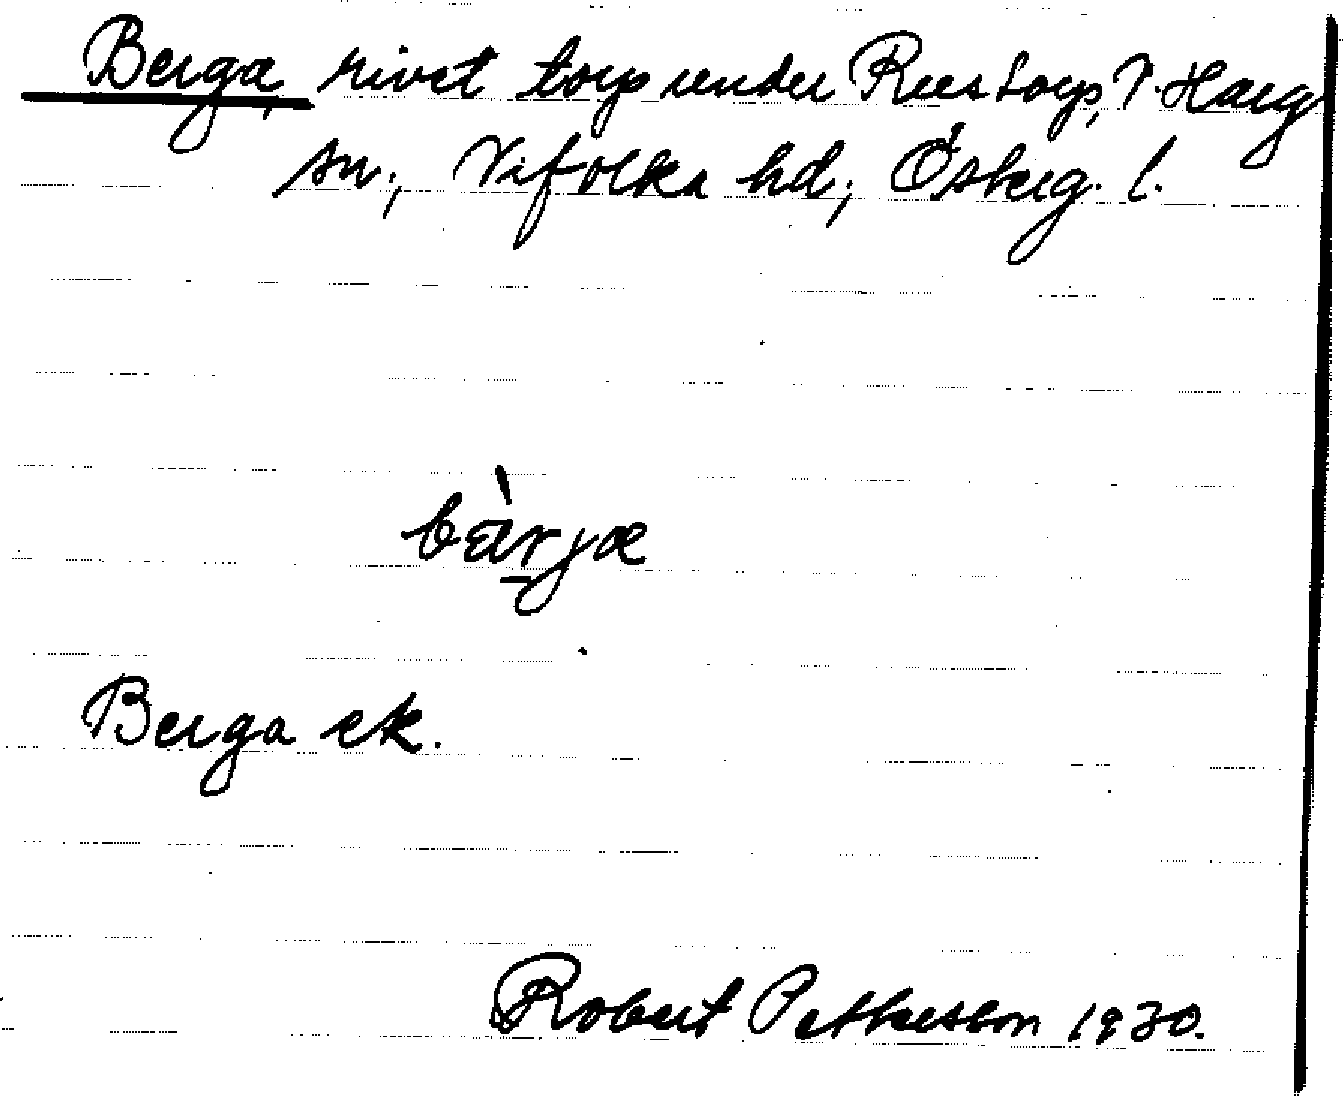 Berga, rivet torp under Ruestorp, V. Harg
sn., Vifolka hd., Österg. l.
bàrjα
Berga ek.
Robert Pettersson 1930.